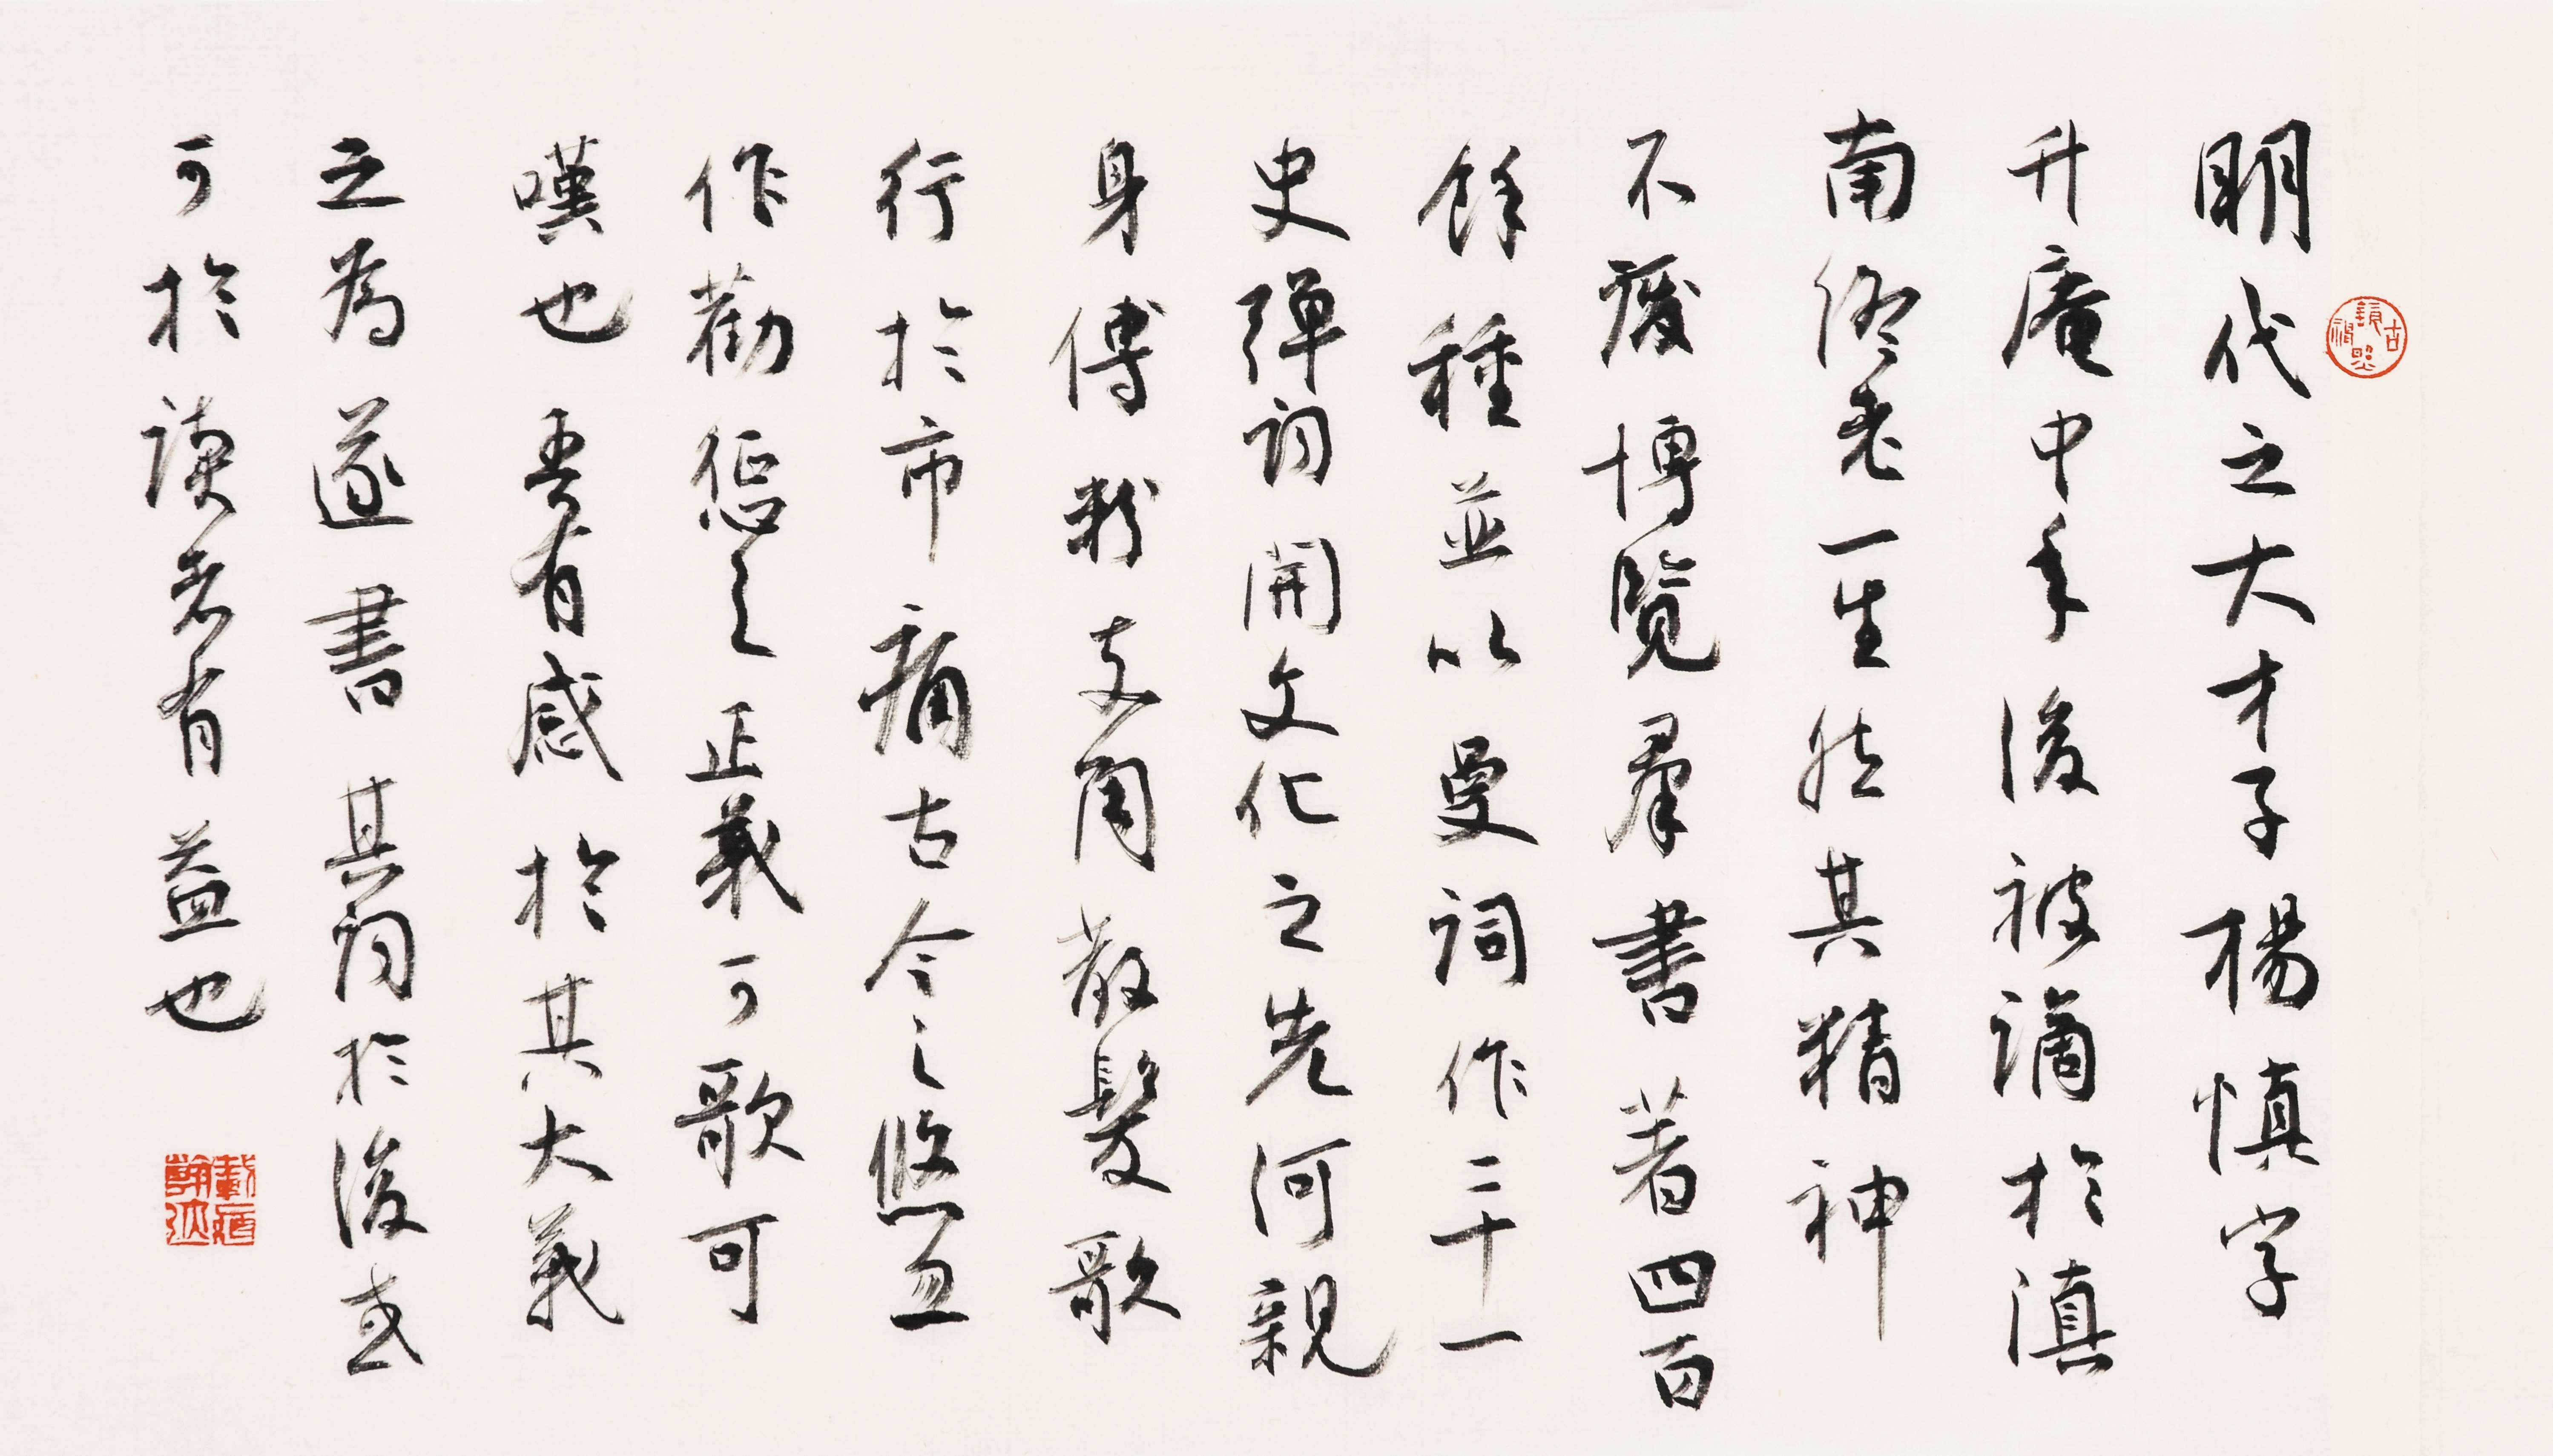 明代之大才子楊慎字
升庵中年後被謫於滇
南終老一生然其精神
不廢博覽羣書著四百
餘種並以曼詞作二十一
史彈詞開文化之先河親
身傅粉支角散髮歌
行於市痛古今之悠忽
作勸懲之正義可歌可
嘆也吾有感於其大義
之為遂書其詞於後或
可於讀者有益也